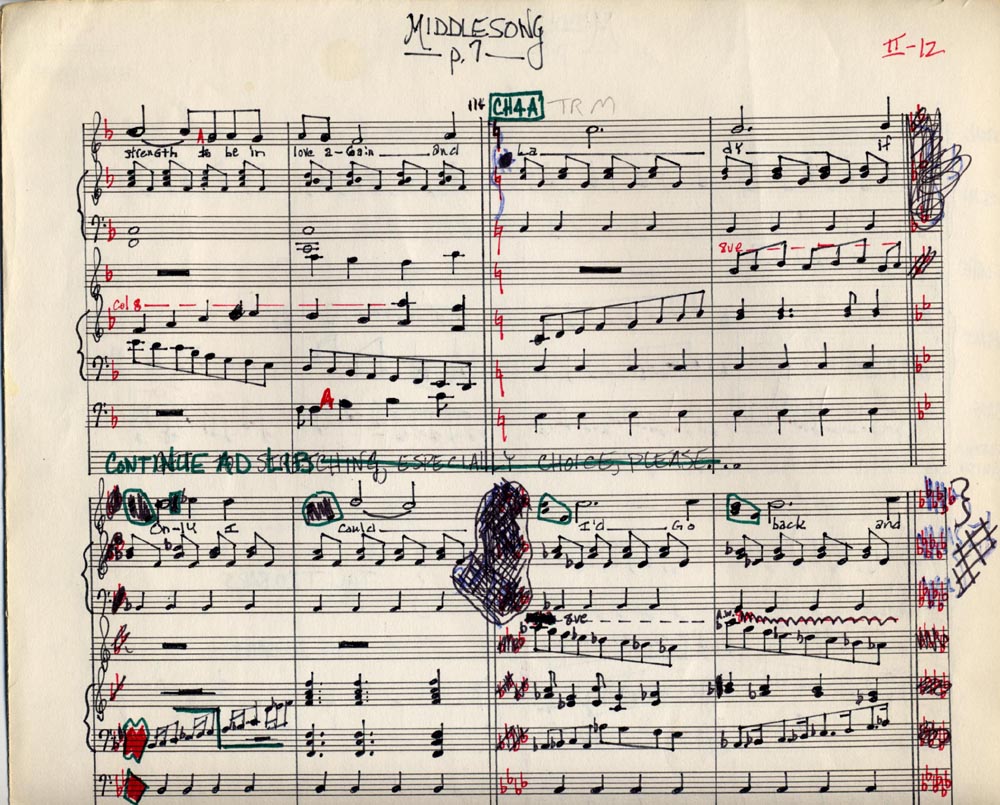 MIDDLESONG
p.7
II-12
114 CH4A TRM
A
strength to be in love a-Gain and La dy if
8ve
Col 8
A
CONTINUE AD LIB ESPECIALLY CHOICE, PLEASE...
On-ly I Could I'd Go back and
8ve